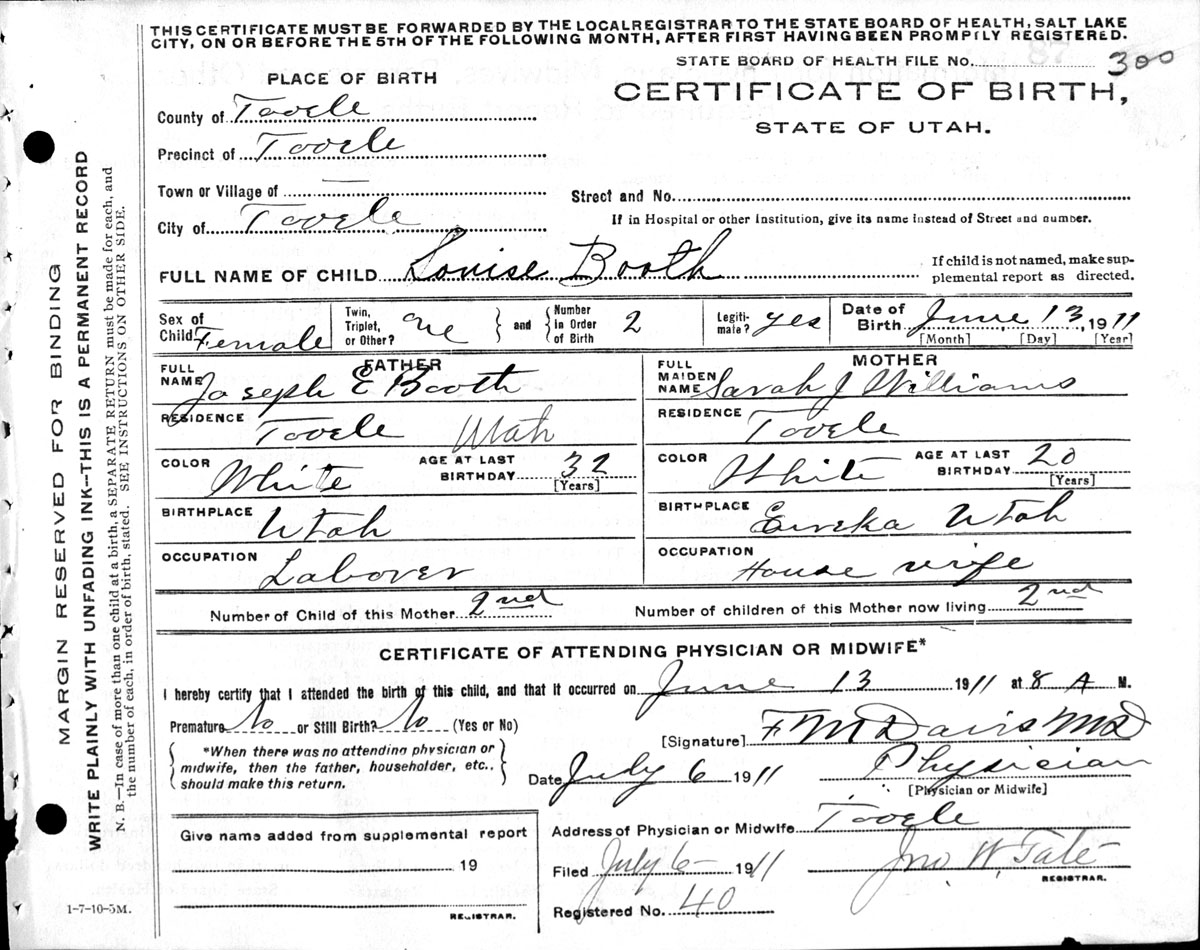 THIS CERTIFICATE MUST BE FORWARDED BY THE LOCAL REGISTRAR TO THE STATE BOARD OF HEALTH, SALT LAKE
CITY, ON OR BEFORE THE 5TH OF THE FOLLOWING MONTH, AFTER FIRST HAVING BEEN PROMPTLY REGISTERED.
STATE BOARD OF HEALTH FILE No. 300
PLACE OF BIRTH
CERTIFICATE OF BIRTH,
STATE OF UTAH.
County of Tooele
Precinct of Tooele
Town or Village of —
Street and No.
City of Tooele
If in Hospital or other Institution, give its name instead of Street and number.
FULL NAME OF CHILD Louise Booth
If child is not named, make sup-
plemental report as directed.
Sex of Child Female
Twin, Triplet, or Other? One
and
Number in Order of Birth 2
Legiti-mate? yes
Date of Birth June 13, 1911
[Month] [Day] [Year]
FATHER
FULL NAME Joseph E Booth
RESIDENCE Tooele Utah
COLOR White
AGE AT LAST BIRTHDAY 32
[Years]
BIRTHPLACE Utah
OCCUPATION Laborer
MOTHER
FULL MAIDEN NAME Sarah J Williams
RESIDENCE Tooele
COLOR White
AGE AT LAST BIRTHDAY 20
[Years]
BIRTHPLACE Eureka Utah
OCCUPATION House wife
Number of Child of this Mother 2nd
Number of children of this Mother now living 2nd
CERTIFICATE OF ATTENDING PHYSICIAN OR MIDWIFE*
I hereby certify that I attended the birth of this child, and that it occurred on June 13 1911 at 8 A M.
Premature No or Still Birth? No (Yes or No)
*When there was no attending physician or
midwife, then the father, householder, etc.,
should make this return.
[Signature] F M Davis MD
Date July 6 1911
Physician
[Physician or Midwife]
Give name added from supplemental report
19
REGISTRAR.
Address of Physician or Midwife Tooele
Filed July 6- 1911
Jno W. Tate
REGISTRAR.
Registered No. 40
1-7-10-5M.
MARGIN RESERVED FOR BINDING
WRITE PLAINLY WITH UNFADING INK—THIS IS A PERMANENT RECORD
N. B.—In case of more than one child at a birth, a SEPARATE RETURN must be made for each, and
the number of each, in order of birth, stated. SEE INSTRUCTIONS ON OTHER SIDE.